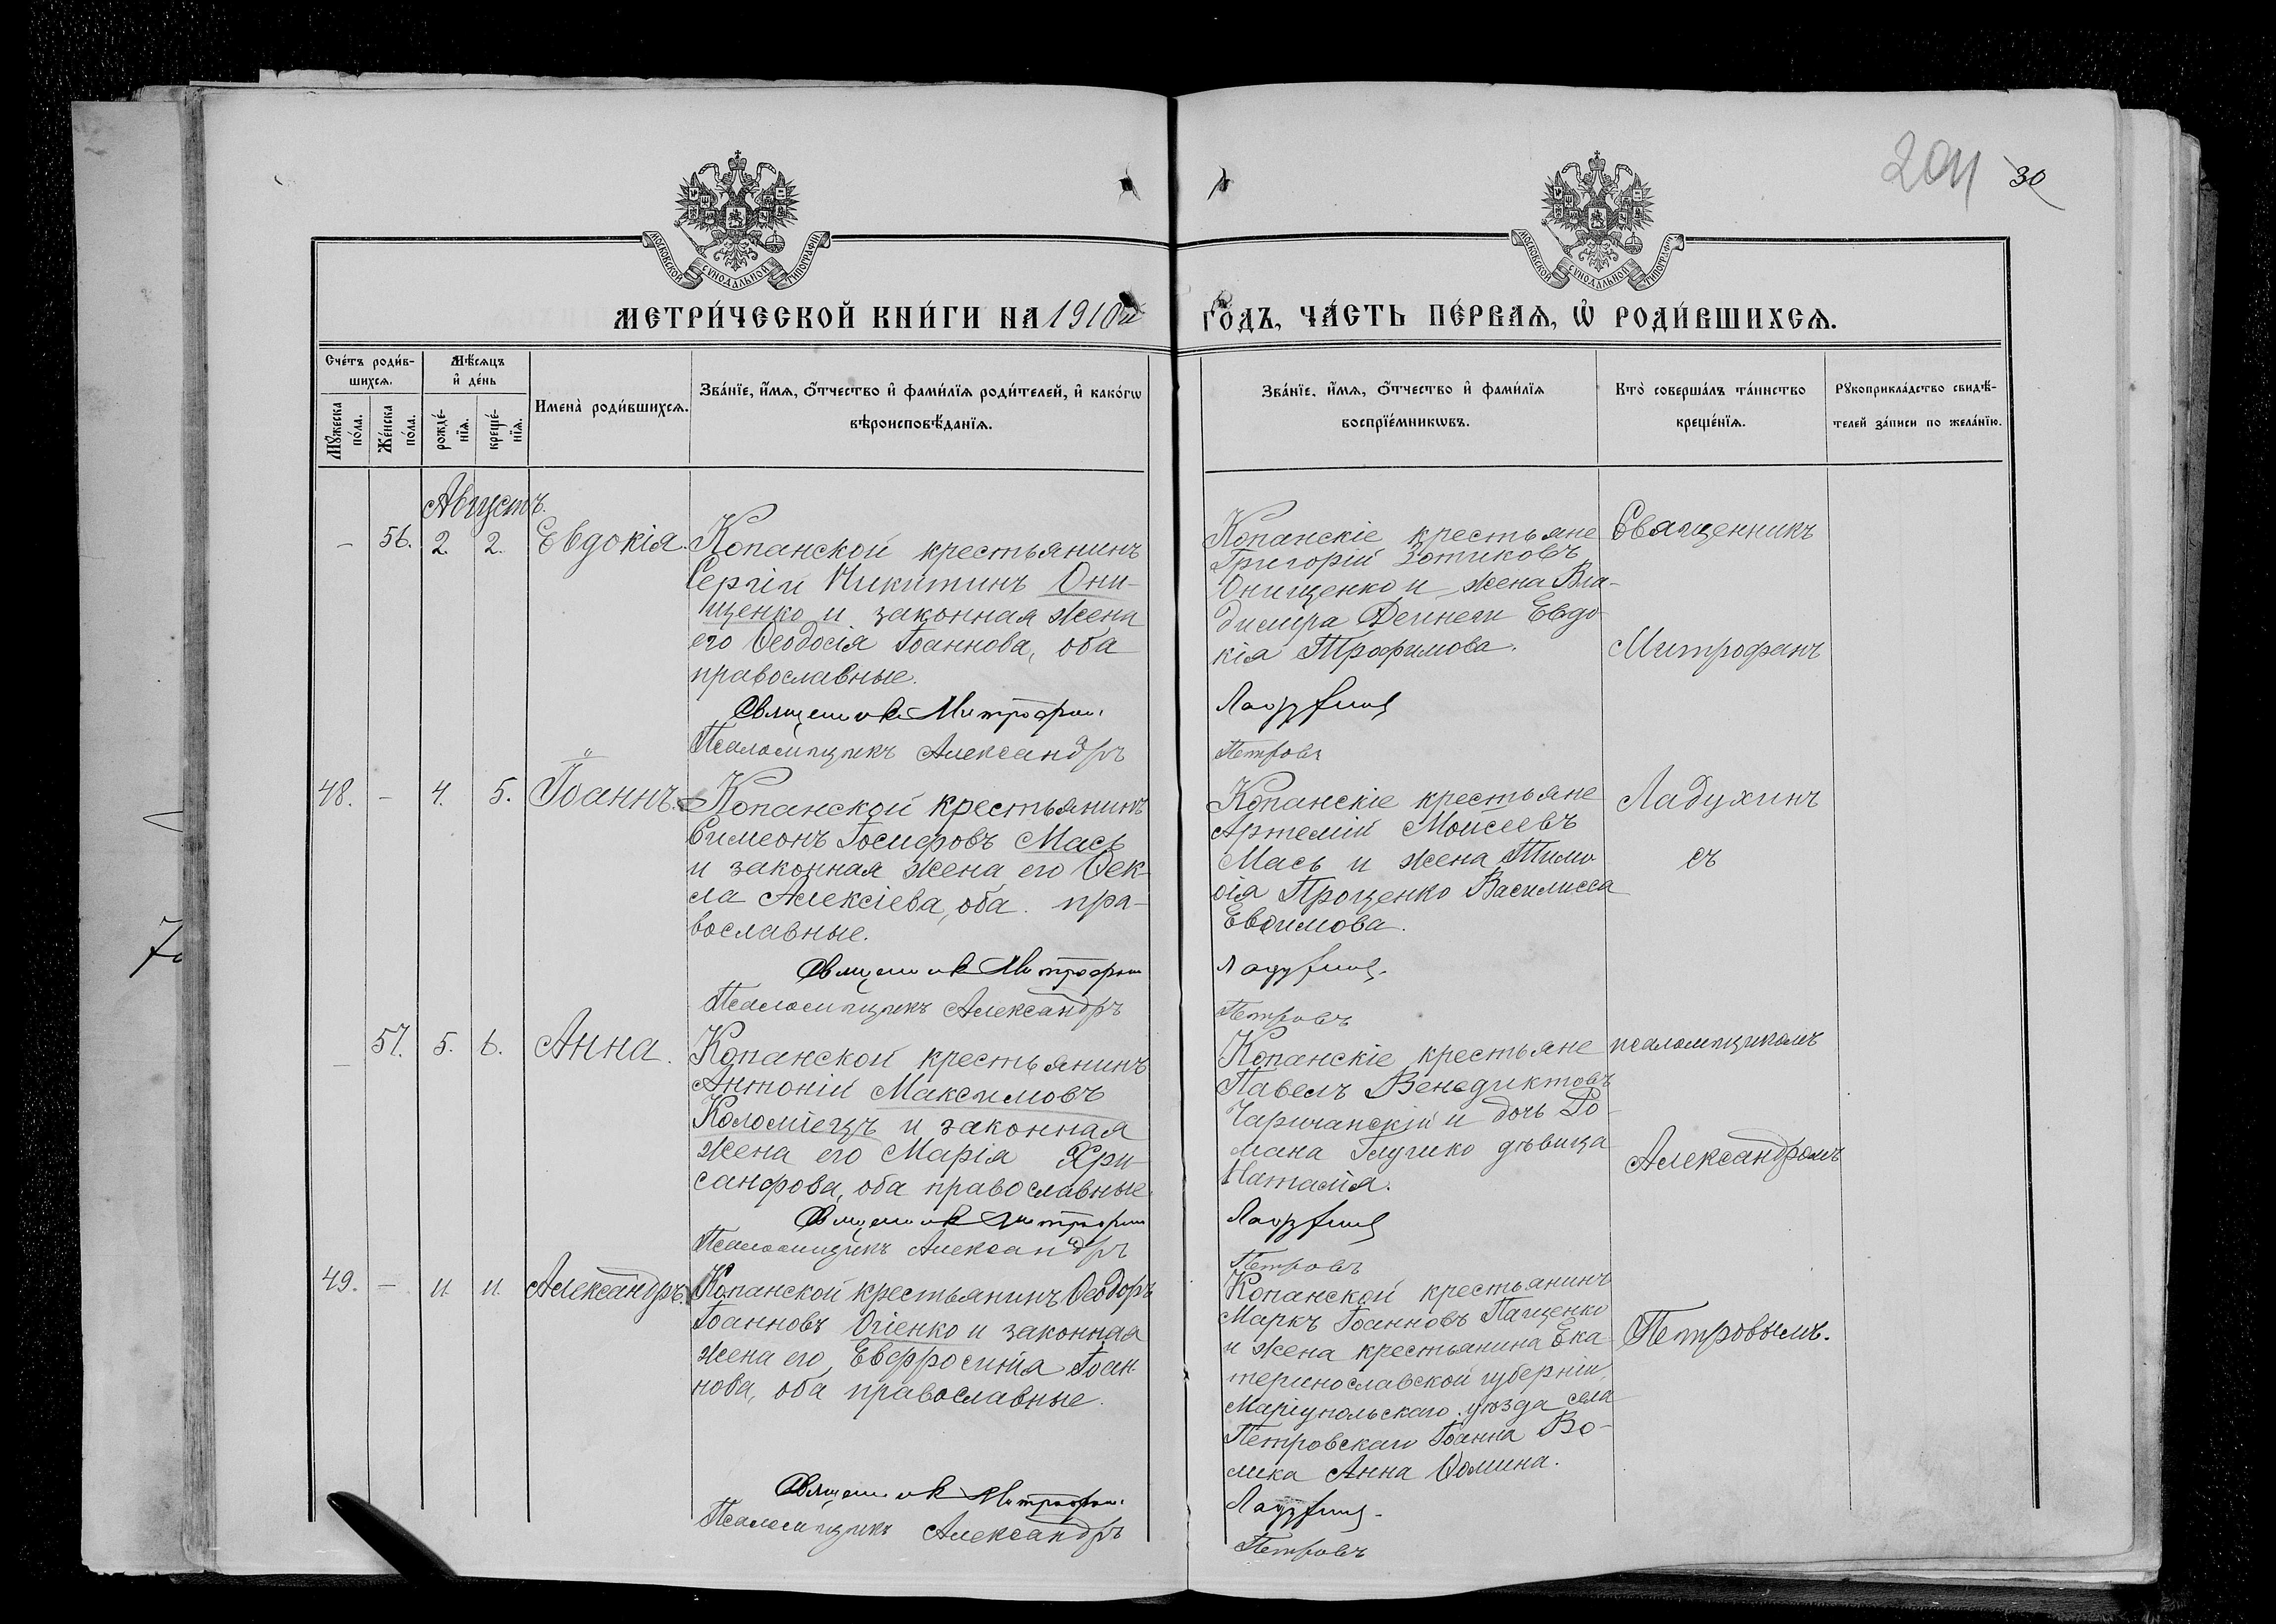 204 30
МОСКОВСКОЙ СѴНОДАЛЬНОЙ ТИПОГРАФІИ
МОСКОВСКОЙ СѴНОДАЛЬНОЙ ТИПОГРАФІИ
МЕТРИ́ЧЕСКОЙ КНИ́ГИ НА 1910й
ГО́ДЪ, ЧА́СТЬ ПЕ́РВАѦ, Ѽ РОДИ́ВШИХСѦ.
Сче́тъ роди́в-
шихсѧ.
Мѣ́сѧцъ
и҆ де́нь
Мꙋ́жеска по́ла.
Же́нска по́ла.
рожде́-
нїѧ.
креще́-
нїѧ.
Имена̀ роди́вшихсѧ.
Зва́нїе, и҆́мѧ, ѻ҆́тчество и҆ фами́лїѧ роди́телей, и҆ како́гѡ
вѣроисповѣ́данїѧ.
Зва́нїе, и҆́мѧ, ѻ҆́тчество и҆ фами́лїѧ
воспрїе́мникѡвъ.
Кто̀ соверша́лъ та́инство
креще́нїѧ.
Рꙋкоприкла́дство свидѣ́-
телей за́писи по жела́нїю.
Августъ.
– 56. 2. 2. Евдокія.
Копанской крестьянинъ
Сергій Никитинъ Они-
щенко и законная жена
его Ѳеодосія Іоаннова, оба
православные.
Священник Митрофан
Псаломщикъ Александръ
Копанскіе крестьяне
Григорій Зотиковъ
Онищенко и жена Вла-
димира Дейнеги Евдо-
кія Трофимова.
Ладухинъ
Петровъ
Священникъ
Митрофанъ
48. – 4. 5. Іоаннъ.
Копанской крестьянинъ
Симеонъ Іосифовъ Мась
и законная жена его Ѳек-
ла Алексіева, оба пра-
вославные.
Священник Митрофан
Псаломщикъ Александръ
Копанскіе крестьяне
Артемій Моисеевъ
Мась и жена Тимо-
ѳія Проценко Василисса
Евѳимова.
Ладухинъ.
Петровъ
Ладухинъ
съ
– 57. 5. 6. Анна.
Копанской крестьянинъ
Антоній Максимовъ
Коломіецъ и законная
жена его Марія Хри-
санфова, оба православные.
Священник Митрофан
Псаломщикъ Александръ
Копанскіе крестьяне
Павелъ Венедиктовъ
Чаричанскій и дочь Ро-
мана дѣвица
Наталія.
Ладухинъ
Петровъ
псаломщикомъ
Александромъ
49. – 11. 11. Александръ.
Копанской крестьянинъ Ѳеодоръ
Іоанновъ Огіенко и законная
жена его, Евфросинія Іоан-
нова, оба православные.
Священник Митрофан
Псаломщикъ Александръ
Копанской крестьянинъ
Маркъ Іоанновъ Пащенко
и жена крестьянина Ека-
теринославской губерніи,
Маріупольскаго уѣзда села
Петровскаго Іоанна Во-
лика Анна Ѳомина.
Ладухинъ.
Петровъ
Петровымъ.